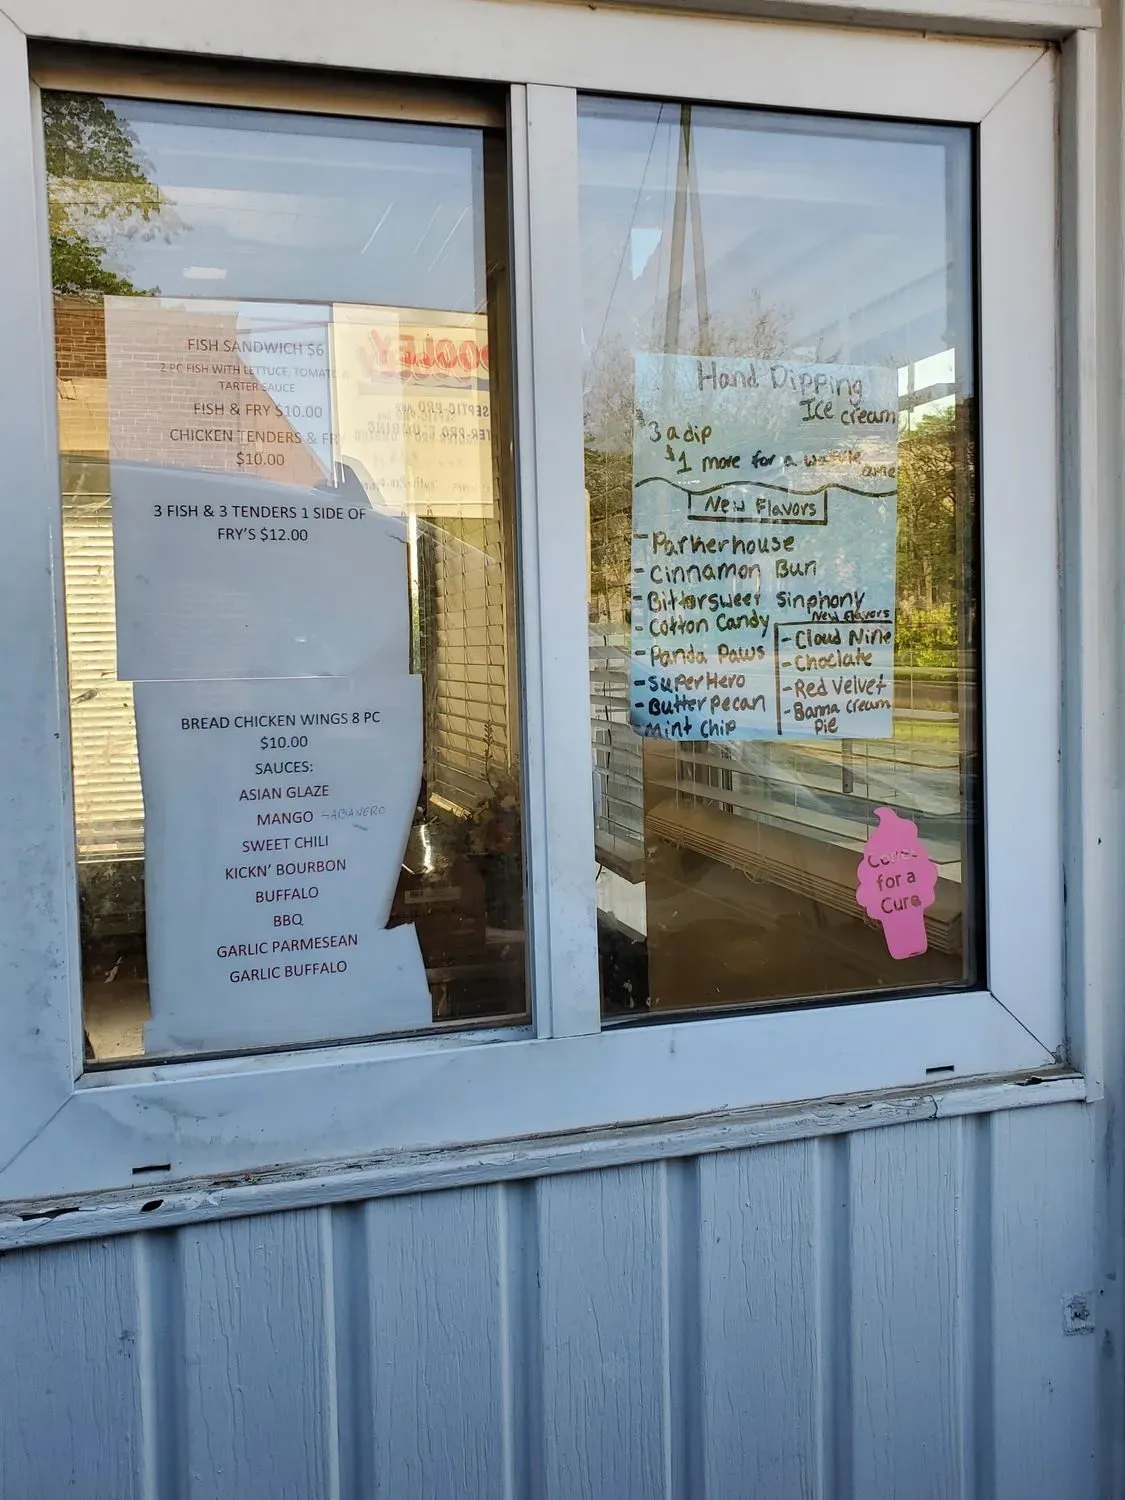 FISH SANDWICH $6
2 PC FISH WITH LETTUCE, TOMATO &
TARTER SAUCE
FISH & FRY $10.00
CHICKEN TENDERS & FRY
$10.00
3 FISH & 3 TENDERS 1 SIDE OF
FRY'S $12.00
BREAD CHICKEN WINGS 8 PC
$10.00
SAUCES:
ASIAN GLAZE
MANGO HABANERO
SWEET CHILI
KICKN' BOURBON
BUFFALO
BBQ
GARLIC PARMESEAN
GARLIC BUFFALO
Hand Dipping
Ice cream
$3 a dip
$1 more for a waffle
cone
New Flavors
- Parkerhouse
- Cinnamon Bun
- Bittersweet Sinphony
- Cotton Candy
- Panda Paws
- SuperHero
- Butterpecan
- Mint Chip
New Flavors
- Cloud Nine
- Choclate
- Red Velvet
- Banna Cream
Pie
Cones
for a
Cure